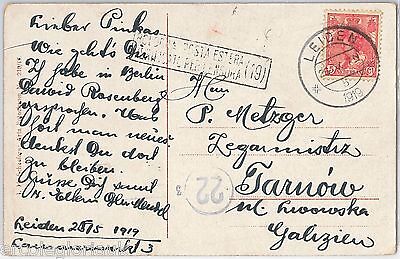 Lieber Pinkas
Wie geht's Dir
Ich habe in Berlin
Dawid Rosenberg
gesprochen. Was
hört man neues
denkst Du dort
zu bleiben.
Grüsse Dich samt
Eltern
Leiden 28/5 1919
3
POSTA ESTERA
(19)
LEIDEN
1919
5
Herr
P. Metzger
Zegarmistrz
Tarnów
ul. Lwowska
Galizien
22
3